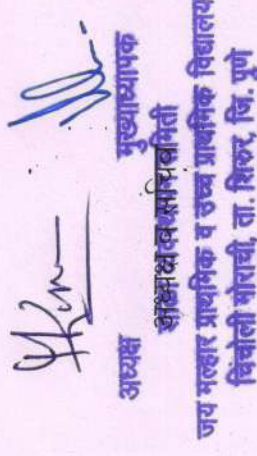 अध्यक्ष मुख्याध्यापक
अध्यक्ष व सचिव
समिती
जय मल्हार प्राथमिक व उच्च प्राथमिक विद्यालय
चिंचोली मोराची, ता. शिरुर, जि. पुणे